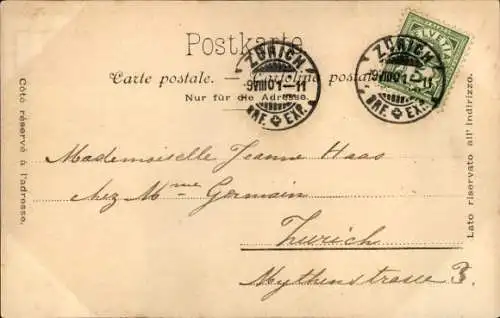 Postkarte.
Carte postale. — Cartolina postale.
Nur für die Adresse.
Côté réservé à l'adresse.
Lato riservato all' Indirizzo.
HELVETIA
ZÜRICH
9.VIII.01–11
BRF. EXP.
ZÜRICH
9.VIII.01–11
BRF. EXP.
Mademoiselle Jeanne Haas
chez Mme Germain
Zurich
Mythenstrasse 3.